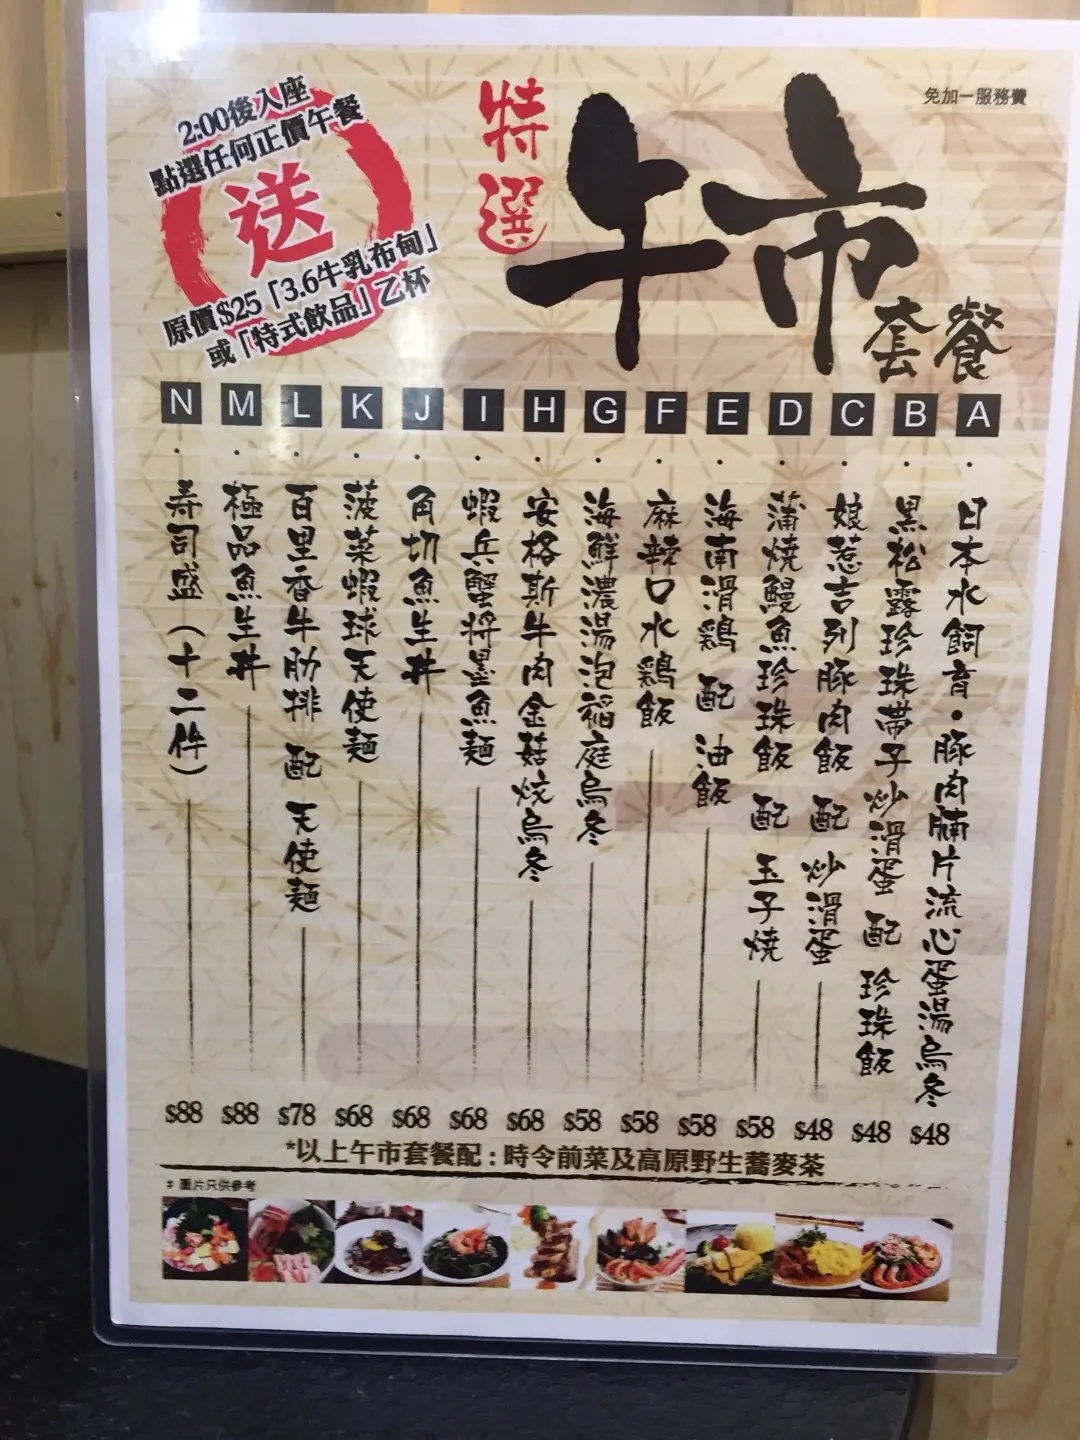 免加一服務費
特選
午市
套餐
2:00後入座
點選任何正價午餐
送
原價$25「3.6牛乳布甸」
或「特式飲品」乙杯
A・日本水飼育・豚肉腩片流心蛋湯烏冬 $48
B・黑松露珍珠帶子炒滑蛋 配 珍珠飯 $48
C・娘惹吉列豚肉飯 配 炒滑蛋 $48
D・蒲燒鰻魚珍珠飯 配 玉子燒 $58
E・海南滑鷄 配 油飯 $58
F・麻辣口水鷄飯 $58
G・海鮮濃湯泡稲庭烏冬 $58
H・安格斯牛肉金菇炆烏冬 $68
I・蝦兵蟹將墨魚麵 $68
J・角切魚生丼 $68
K・菠菜蝦球天使麵 $68
L・百里香牛肋排 配 天使麵 $78
M・極品魚生丼 $88
N・寿司盛（十二件） $88
*以上午市套餐配：時令前菜及高原野生蕎麥茶
# 圖片只供參考